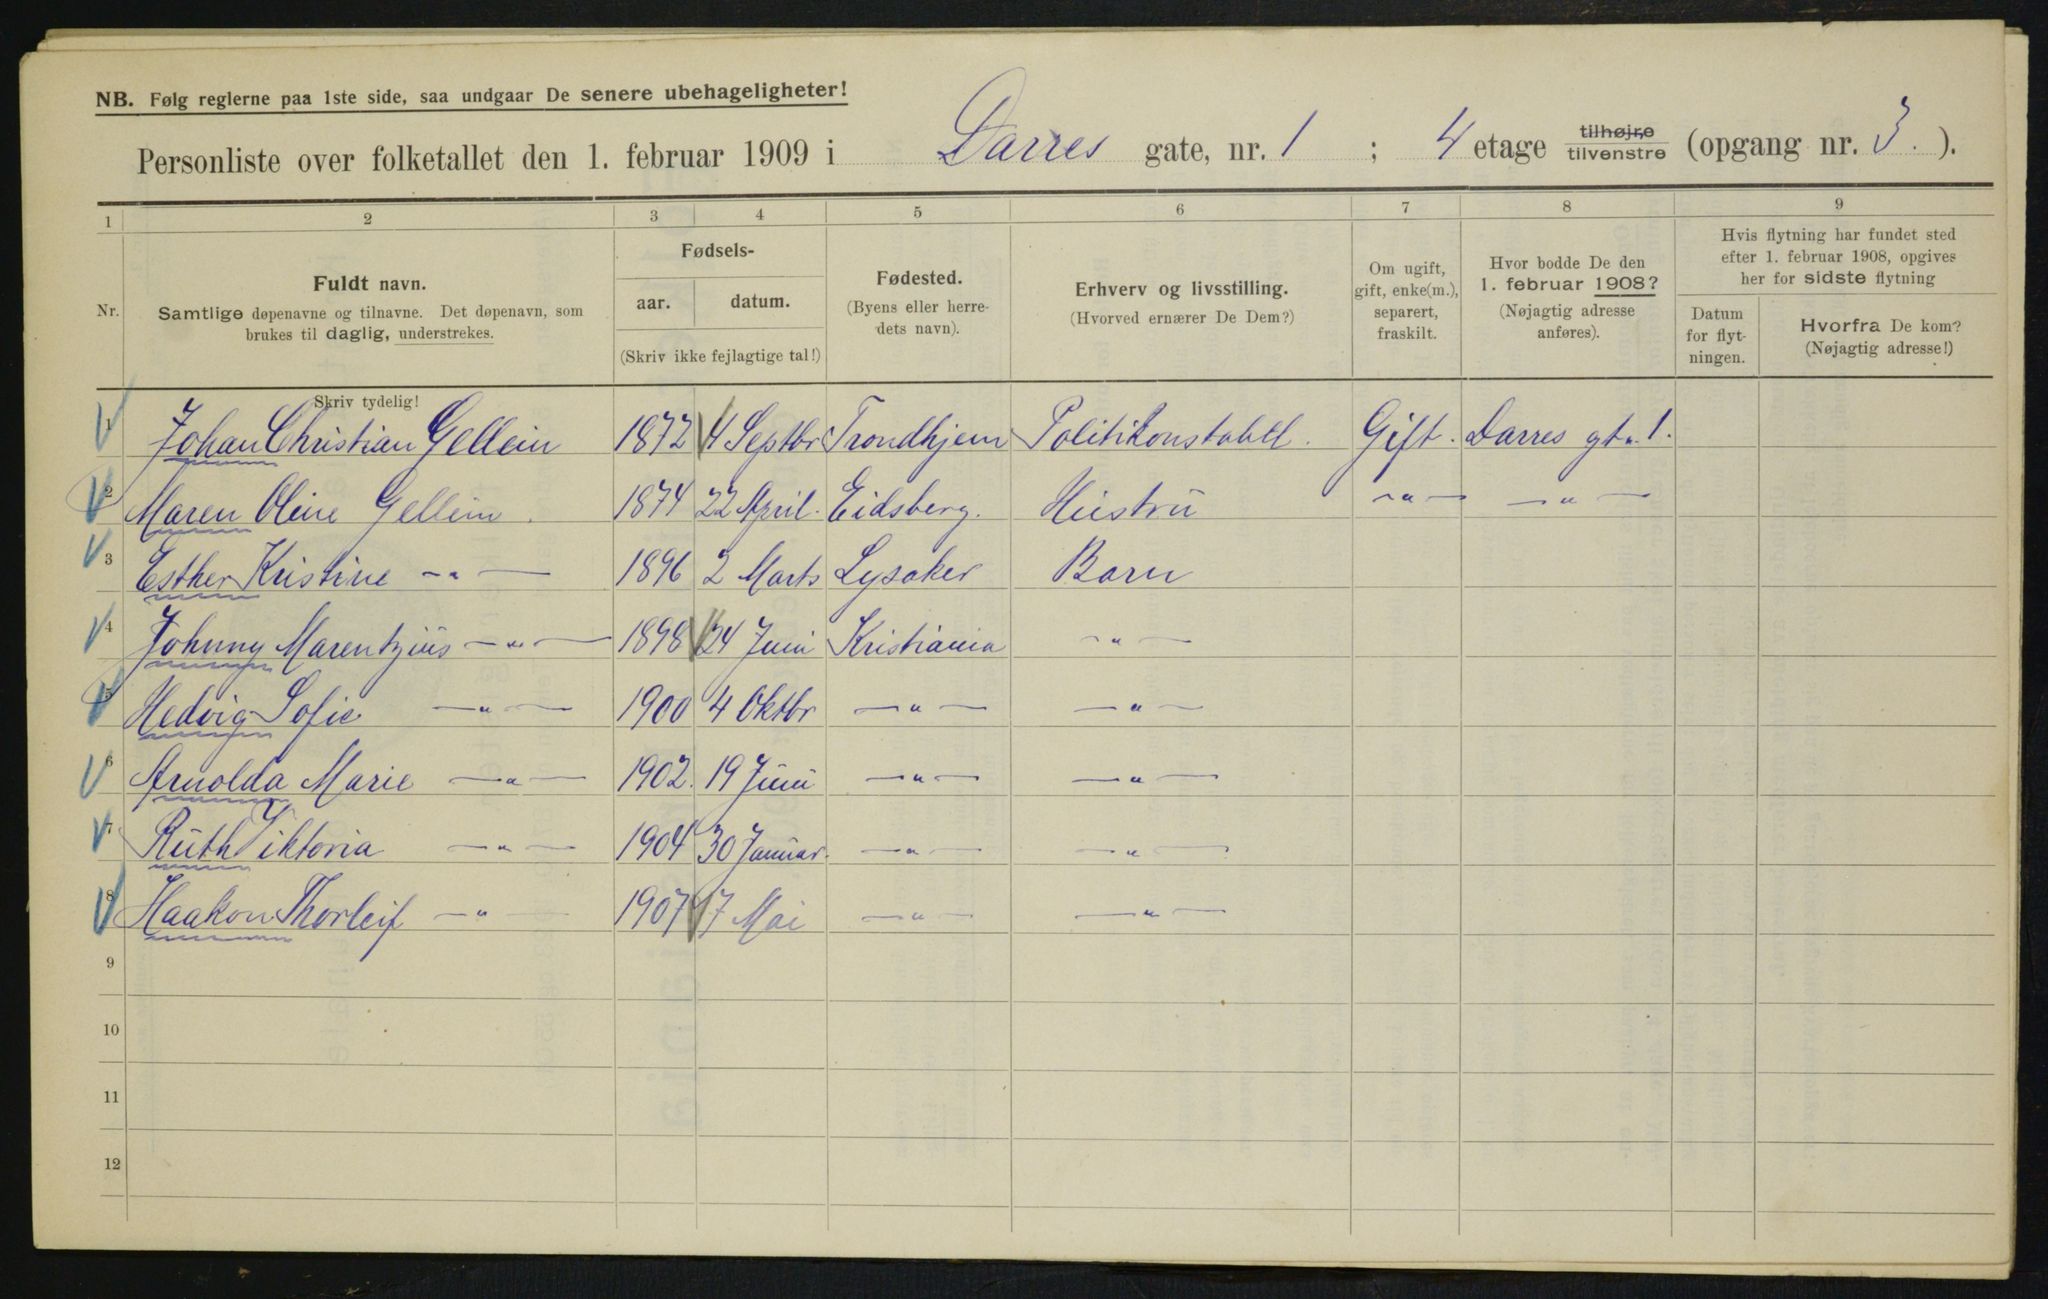 NB. Følg reglerne paa 1ste side, saa undgaar De senere ubehageligheter!
Personliste over folketallet den 1. februar 1909 i Darres gate, nr. 1 ; 4 etage tilhøjre tilvenstre (opgang nr. 3. ).
1 2 3 4 5 6 7 8 9
Nr.
Fuldt navn.
Samtlige døpenavne og tilnavne. Det døpenavn, som
brukes til daglig, understrekes.
Fødsels-
aar. datum.
(Skriv ikke fejlagtige tal!)
Fødested.
(Byens eller herre-
dets navn).
Erhverv og livsstilling.
(Hvorved ernærer De Dem?)
Om ugift,
gift, enke(m.),
separert,
fraskilt.
Hvor bodde De den
1. februar 1908?
(Nøjagtig adresse
anføres).
Hvis flytning har fundet sted
efter 1. februar 1908, opgives
her for sidste flytning
Datum
for flyt-
ningen.
Hvorfra De kom?
(Nøjagtig adresse!)
Skriv tydelig!
1 Johan Christian Gellein 1872 4 Septbr Trondhjem Politikonstabel. Gift. Darres gt. 1.
2 Maren Oline Gellein. 1874 22 April. Eidsberg. Hustru —"— —"—
3 Esther Kristine —"— 1896 2 Marts Lysaker Barn
4 Johnny Marentzius —"— 1898 24 Juni Kristiania —"—
5 Hedvig Sofie —"— 1900 4 Oktbr —"— —"—
6 Arnolda Marie —"— 1902. 19 Juni —"— —"—
7 Ruth Viktoria —"— 1904 30 Januar. —"— —"—
8 Haakon Thorleif —"— 1907 17 Mai —"— —"—
9
10
11
12